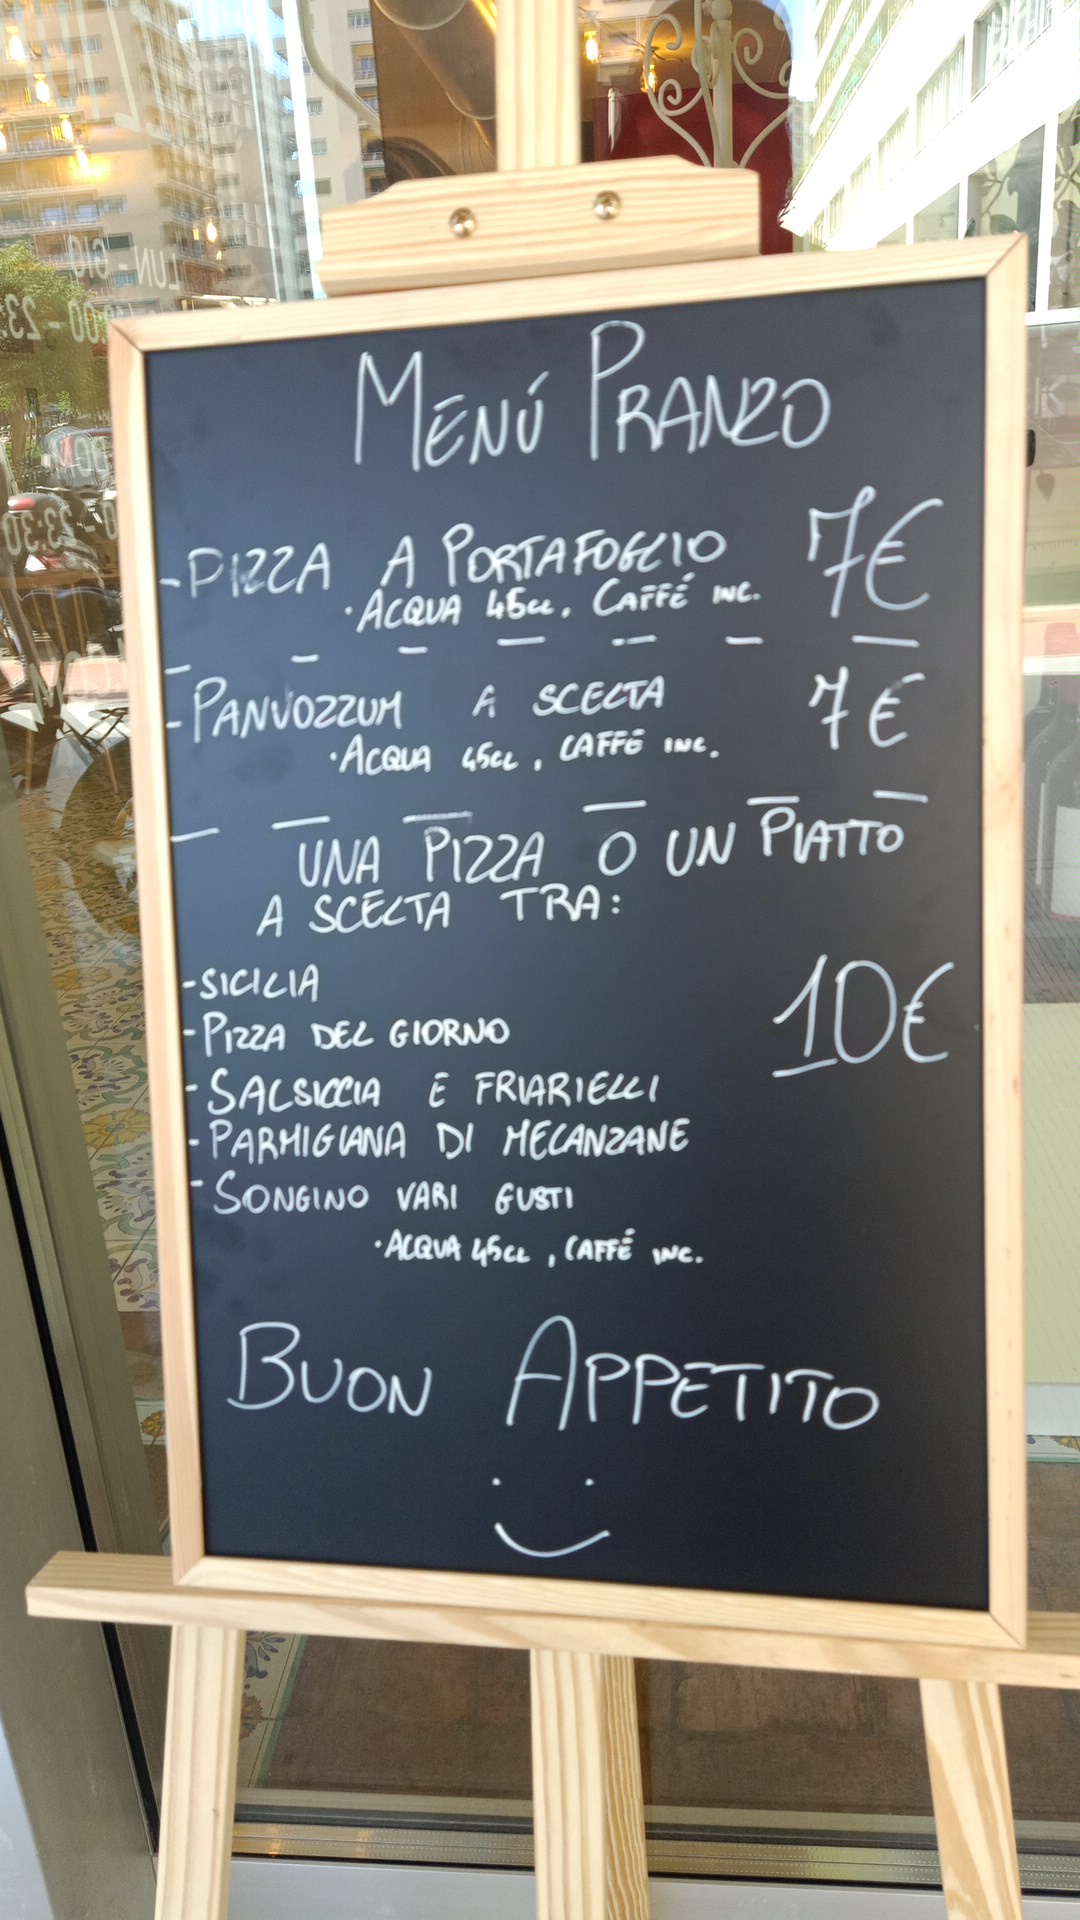 MENÚ PRANZO
-PIZZA A PORTAFOGLIO 7€
·ACQUA 45cc, CAFFÉ INC.
-PANUOZZUM A SCELTA 7€
·ACQUA 45CL, CAFFÉ INC.
UNA PIZZA O UN PIATTO
A SCELTA TRA:
-SICILIA
-PIZZA DEL GIORNO 10€
-SALSICCIA E FRIARIELLI
-PARMIGIANA DI MELANZANE
-SONGINO VARI GUSTI
·ACQUA 45CL, CAFFÉ INC.
BUON APPETITO
LUN - GIO
00 - 23:
- 23:30